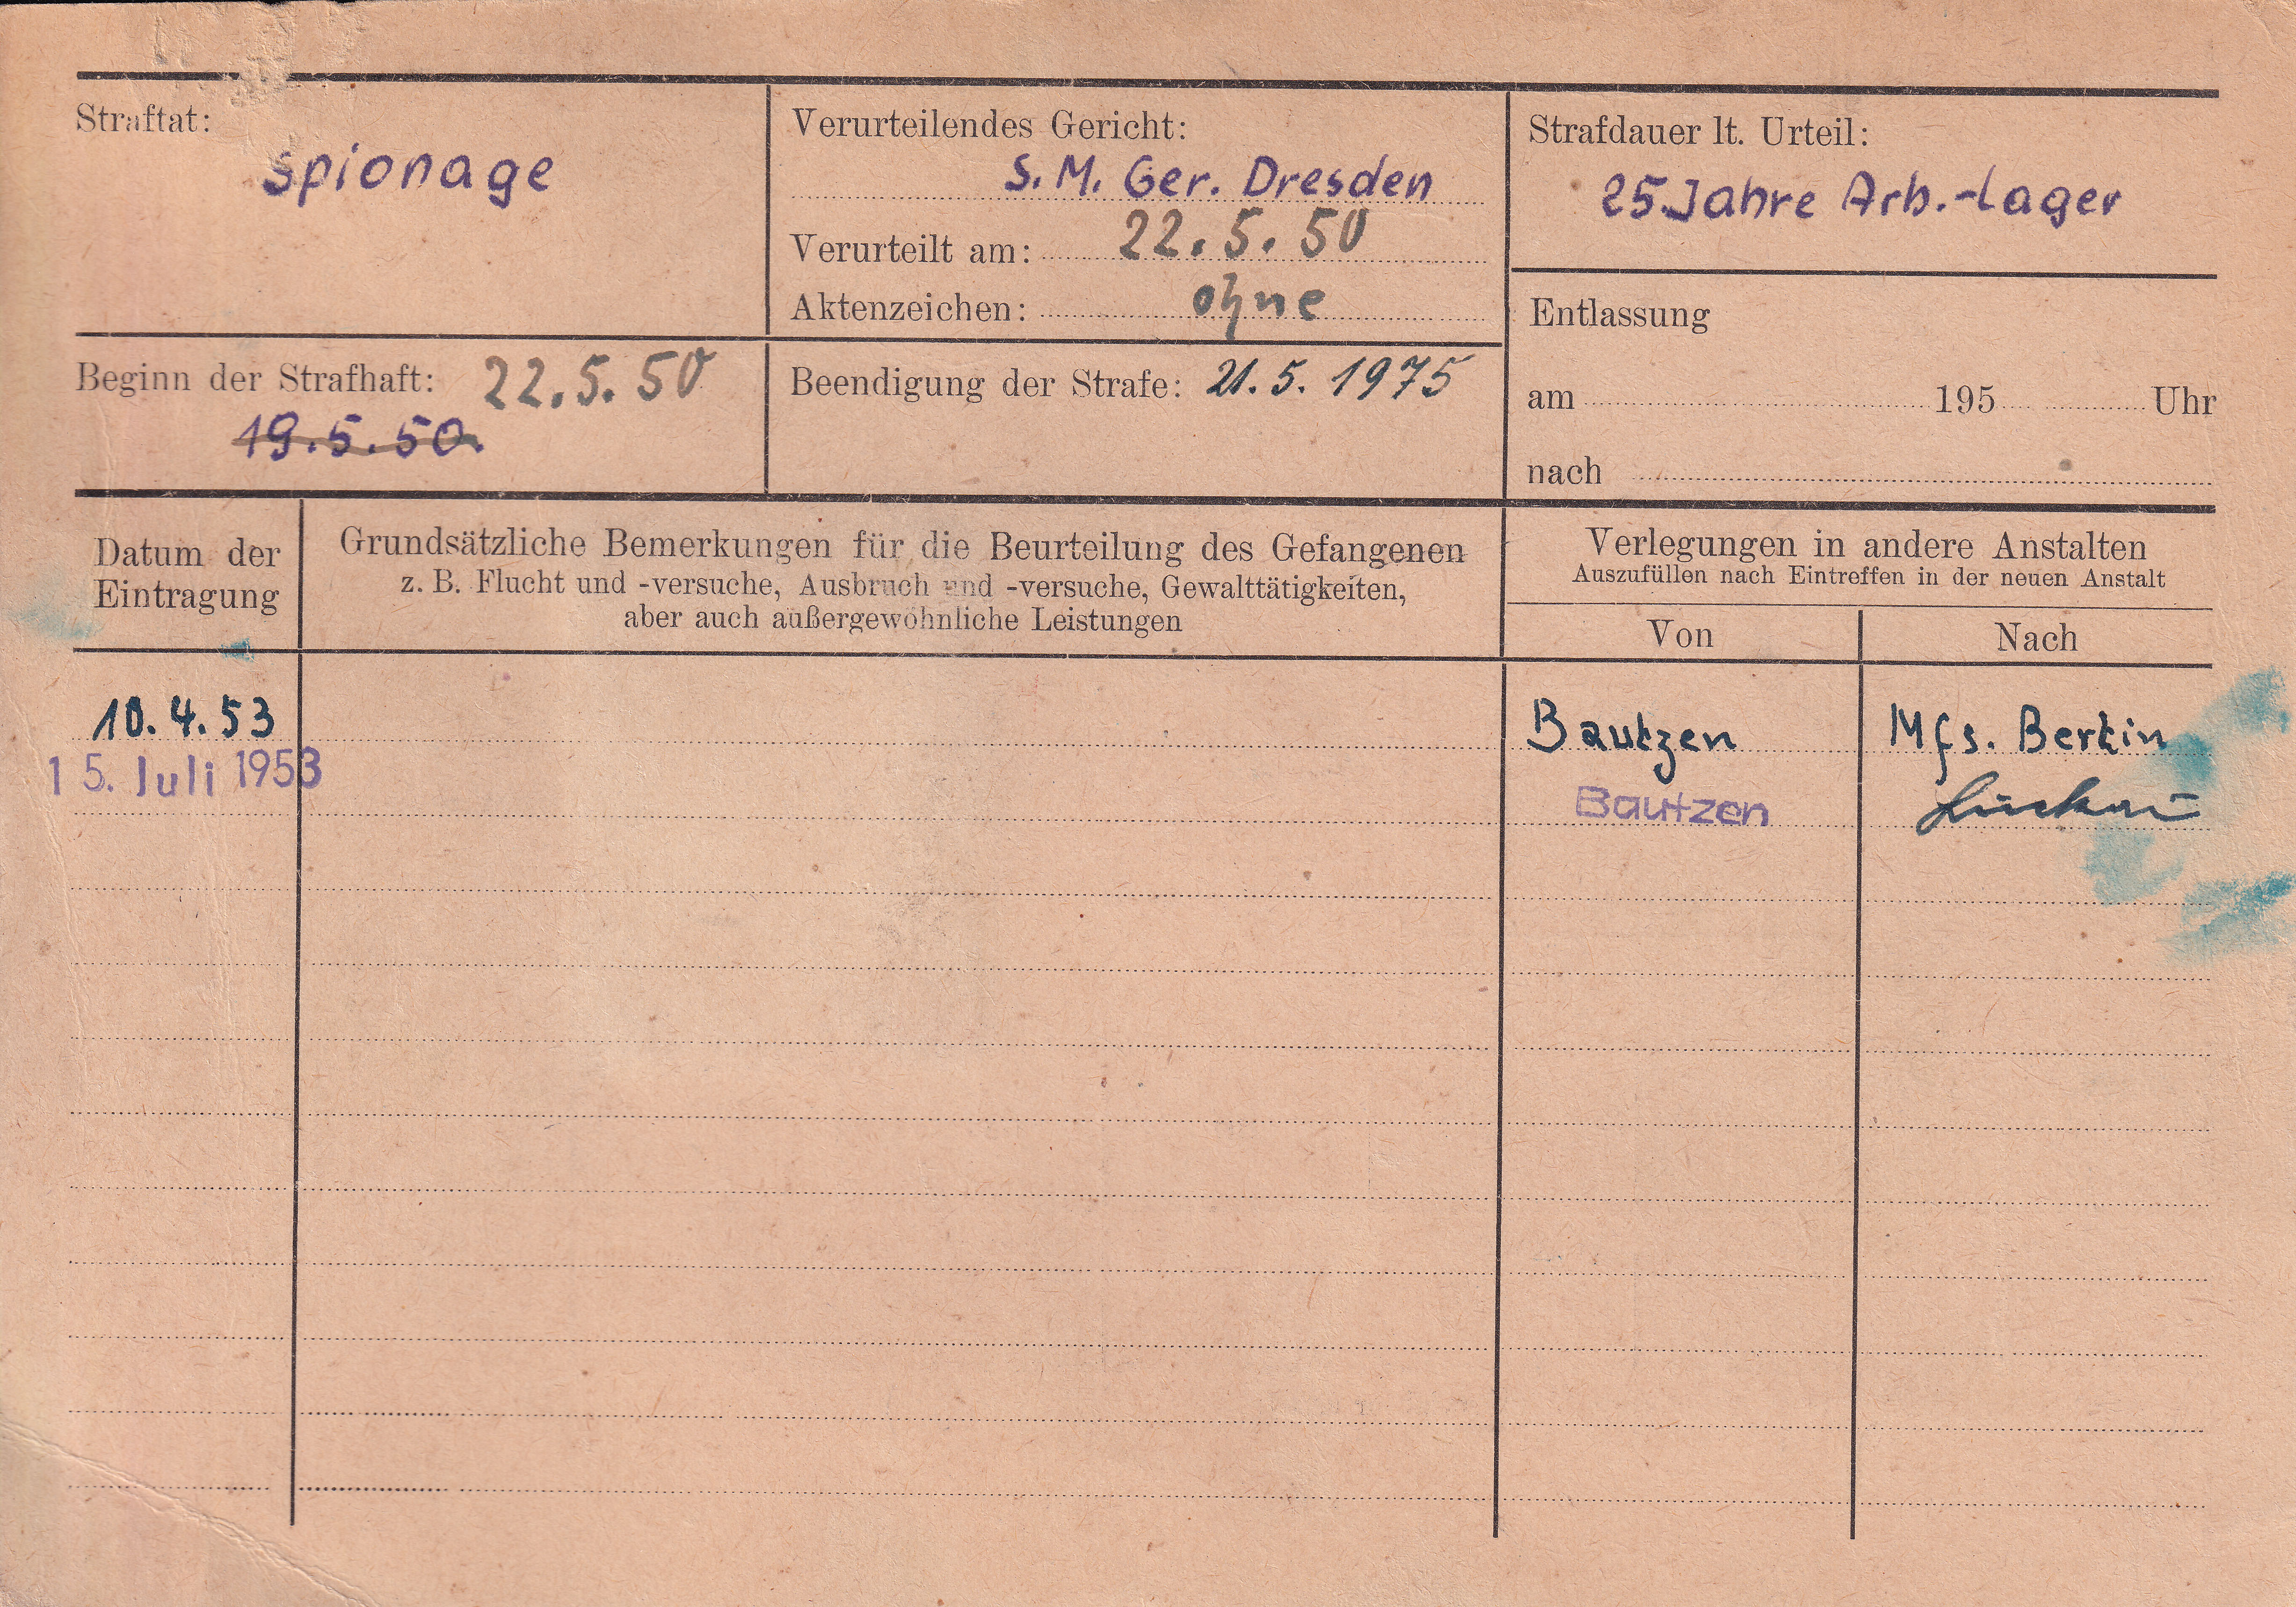 Straftat:
spionage
Verurteilendes Gericht:
S. M. Ger. Dresden
Verurteilt am: 22. 5. 50
Aktenzeichen: ohne
Strafdauer lt. Urteil:
25 Jahre Arb.-lager
Entlassung
am 195 Uhr
nach
Beginn der Strafhaft: 22. 5. 50
19. 5. 50.
Beendigung der Strafe: 21. 5. 1975
Datum der
Eintragung
Grundsätzliche Bemerkungen für die Beurteilung des Gefangenen
z. B. Flucht und -versuche, Ausbruch und -versuche, Gewalttätigkeiten,
aber auch außergewöhnliche Leistungen
Verlegungen in andere Anstalten
Auszufüllen nach Eintreffen in der neuen Anstalt
Von Nach
10. 4. 53 Bautzen Mfs. Berlin
15. Juli 1953 Bautzen Luckau